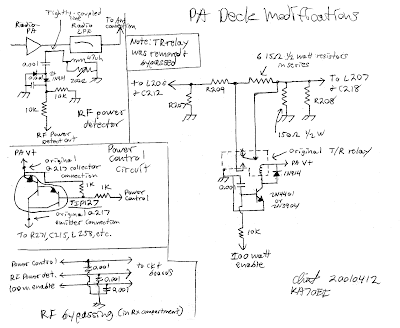 PA Deck Modifications
Tightly-coupled
line
Radio
PA
Radio
LPF
To Ant
connection
Note: TR relay
was removed &
bypassed
0.001
1N914
10K
10K
RF Power
Detect out
RF power
detector
6 15Ω 1/2 watt resistors
in series
to L206
& C212
R207
R209
To L207
& C218
R208
150Ω 1/2 W
original T/R relay
PA V+
1N914
0.001
2N4401
or
2N3904
10K
100 watt
enable
Power
Control
Circuit
PA V+
original
Q217 collector
connection
1K
1K
Power
control
TIP127
original Q217
emitter connection
To R271, C215, L253, etc.
Power Control
RF Power det.
100w enable
0.001
0.001
0.001
to ckt
boards
RF bypassing (in Rx compartment)
Clint 20010412
KA7OEI